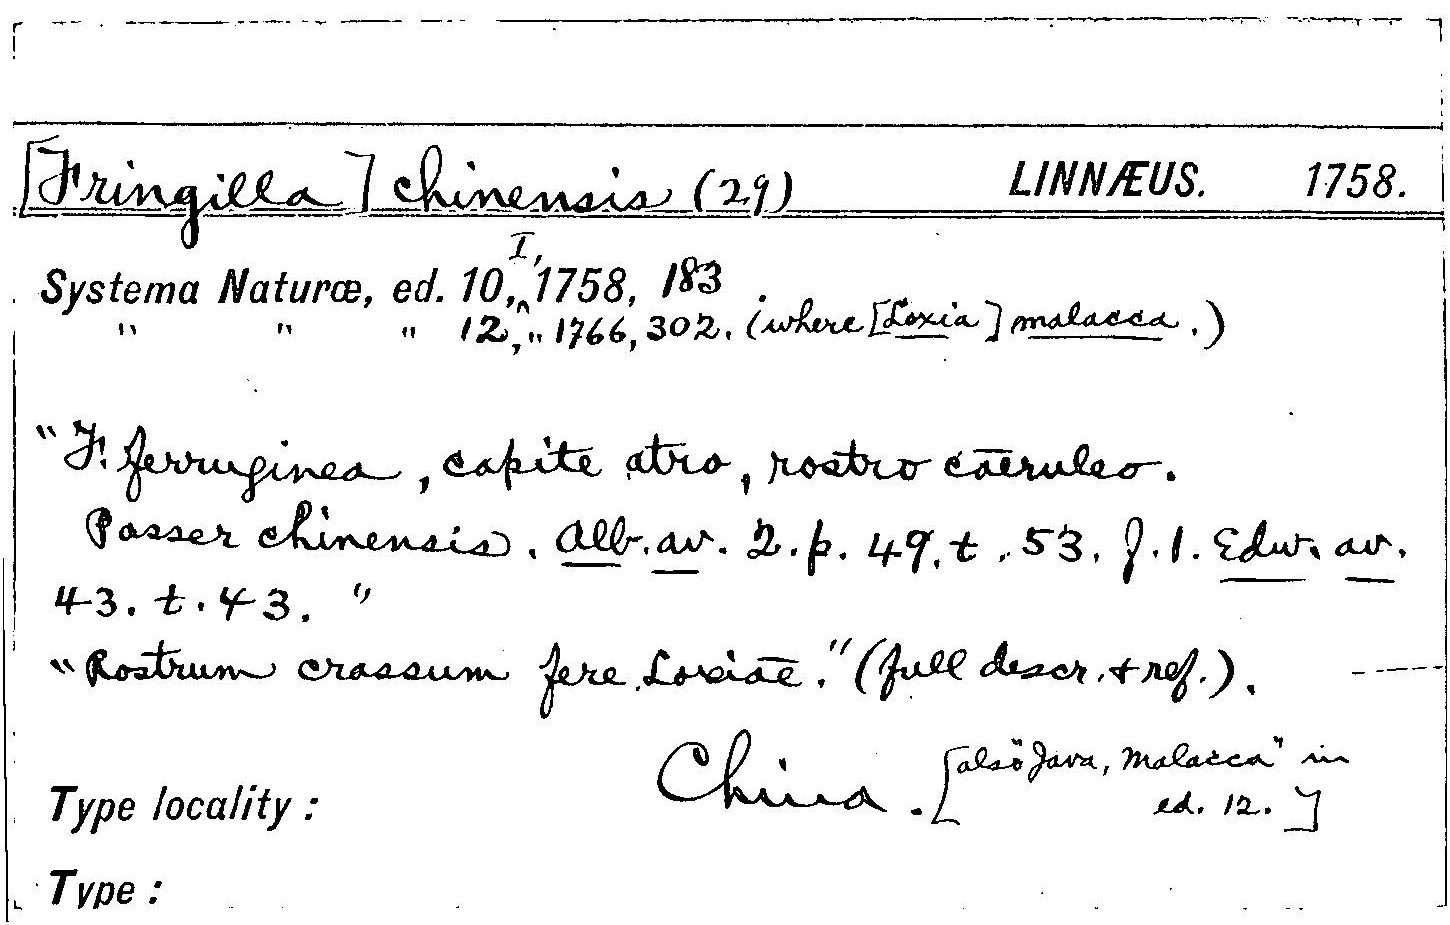 [Fringilla] chinensis (29) LINNÆUS. 1758.
Systema Naturæ, ed. 10, I, 1758, 183.
" " " 12, " 1766, 302. (where [Loxia] malacca.)
"F. ferruginea, capite atro, rostro caeruleo.
Passer chinensis. Alb. av. 2. p. 49. t. 53. f. 1. Edw. av.
43. t. 43. "
"Rostrum crassum fere Loxiae." (full descr. + ref.).
Type locality: China. [also "Java, Malacca" in
ed. 12.]
Type: